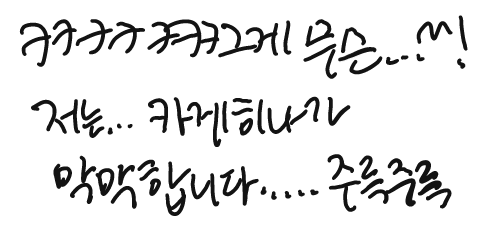 ㅋㅋㅋㅋㅋㅋㅋ그게 무슨...씨!
저는... 카게히나가
막막합니다..... 주륵주륵